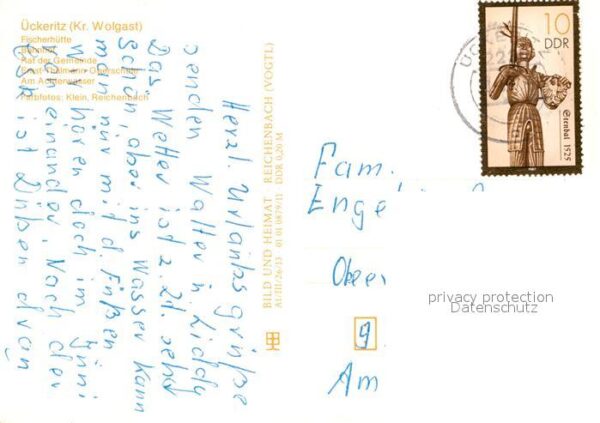 Ückeritz (Kr. Wolgast)
Fischerhütte
Bahnhof
Rat der Gemeinde
Ernst-Thälmann-Oberschule
Am Achterwasser
Farbfotos: Klein, Reichenbach
Herzl. Urlaubsgrüße
senden Walter u.
Das Wetter ist z. Zt. sehr
schön, aber ins Wasser kann
man nur m. d. Füßen
Wir hören doch im Juni
voneinander. Nach der
ist
BILD UND HEIMAT REICHENBACH (VOGTL)
A1/III/26/13 01 01 0879/11 DDR 0,20 M
10
DDR
Stendal 1525
Fam.
Enge
Ober
9
Am
privacy protection
Datenschutz